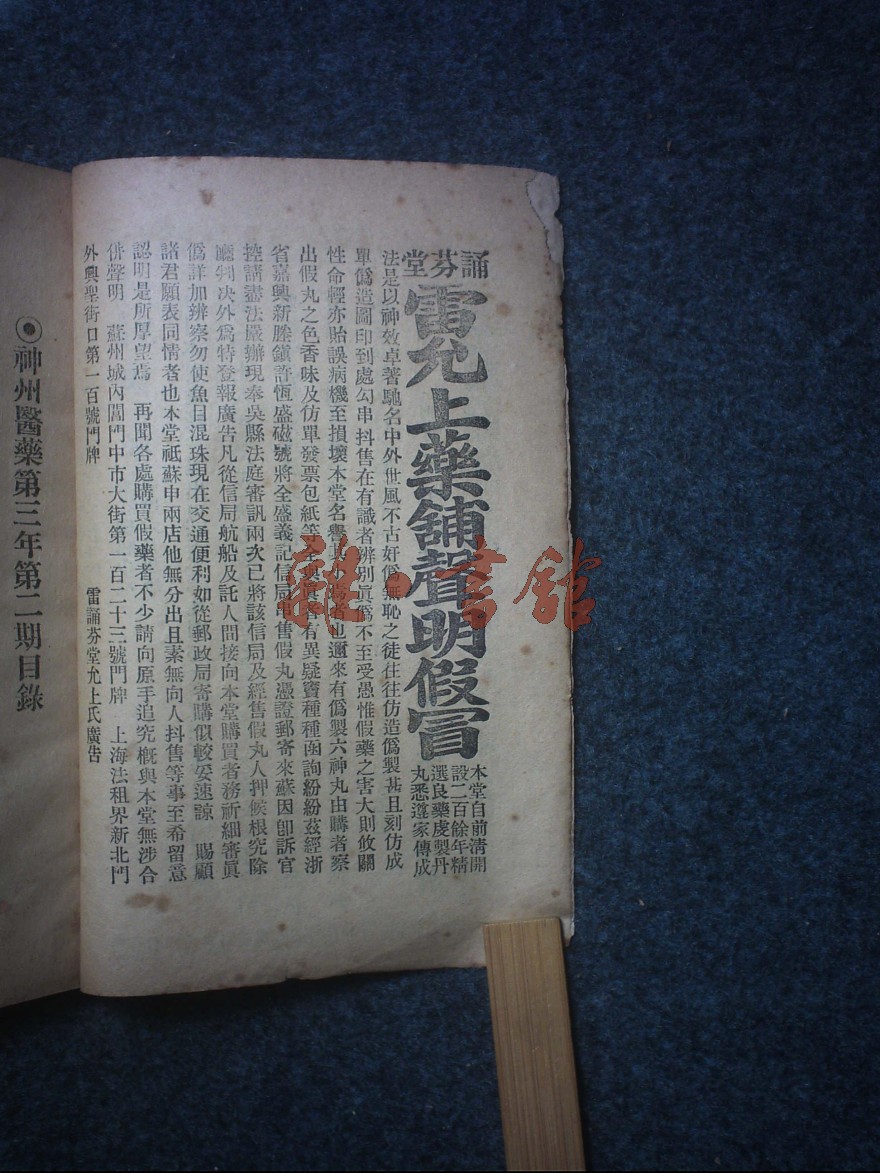 誦芬堂
雷允上藥舖聲明假冒
本堂自前清開
設二百餘年精
選良藥虔製丹
丸悉遵家傳成
法是以神效卓著馳名中外世風不古奸僞無恥之徒往往仿造僞製甚且刻仿成
單僞造圖印到處勾串抖售在有識者辨別眞僞不至受愚惟假藥之害大則攸關
性命輕亦貽誤病機至損壞本堂名譽其小焉者也邇來有僞製六神丸由購者察
出假丸之色香味及仿單發票包紙等全與眞者有異疑竇種種函詢紛紛茲經浙
省嘉興新塍鎭許恆盛磁號將全盛義記信局串售假丸憑證郵寄來蘇因卽訴官
控請盡法嚴辦現奉吳縣法庭審訊兩次已將該信局及經售假丸人押候根究除
廳判决外爲特登報廣告凡從信局航船及託人間接向本堂購買者務祈細審眞
僞詳加辨察勿使魚目混珠現在交通便利如從郵政局寄購似較妥速諒 賜顧
諸君願表同情者也本堂祗蘇申兩店他無分出且素無向人抖售等事至希留意
認明是所厚望焉 再聞各處購買假藥者不少請向原手追究槪與本堂無涉合
併聲明 蘇州城內閶門中市大街第一百二十三號門牌 上海法租界新北門
外興聖街口第一百號門牌 雷誦芬堂允上氏廣告
◉神州醫藥第三年第二期目錄
雜·書館